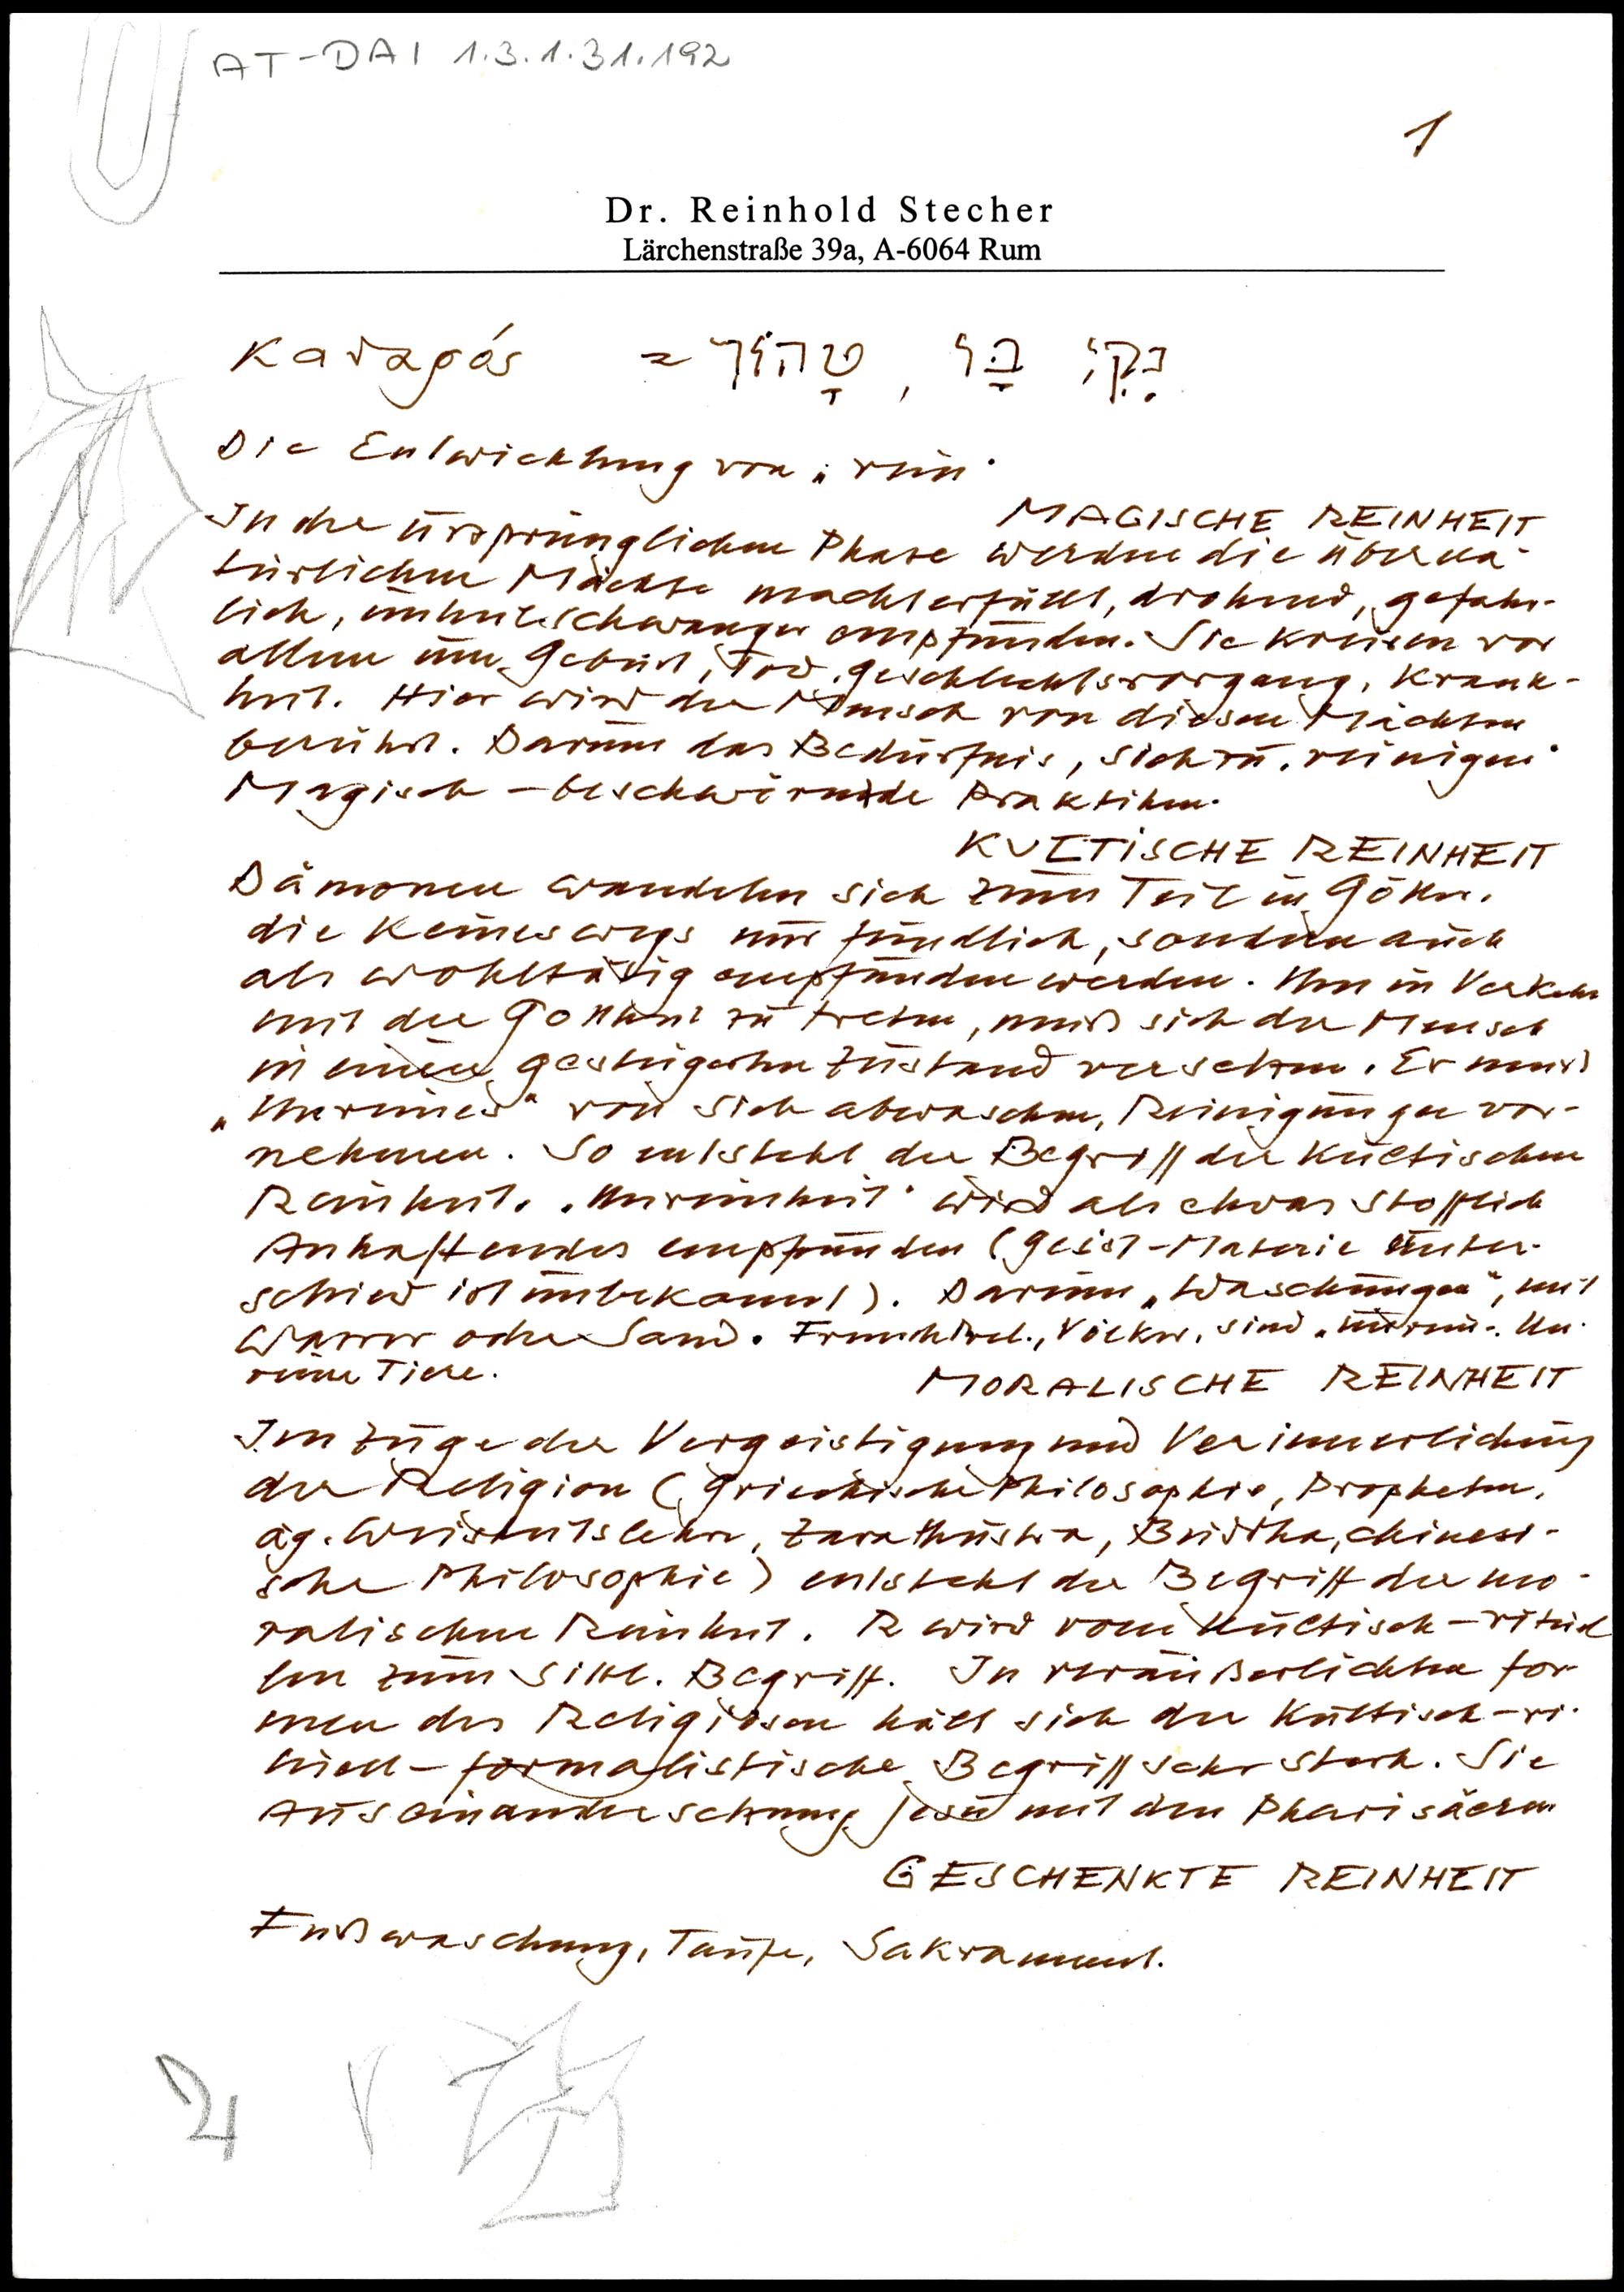 AT-DAI 1.3.1.31.192
1
Dr. Reinhold Stecher
Lärchenstraße 39a, A-6064 Rum
καθαρός = טָהוֹר, בַּר נָקִי
Die Entwicklung von „rein"
MAGISCHE REINHEIT
In der ursprünglichen Phase werden die überna-
türlichen Mächte machterfüllt, drohend, gefähr-
lich, unheilschwanger empfunden. Sie kreisen vor
allem um Geburt, Tod, Geschlechtsvorgang, Krank-
heit. Hier wird der Mensch von diesen Mächten
berührt. Darum das Bedürfnis, sich zu „reinigen"
Magisch-beschwörende Praktiken.
KULTISCHE REINHEIT
Dämonen wandeln sich zum Teil in Götter,
die keineswegs nur feindlich, sondern auch
als wohltätig empfunden werden. Um in Verkehr
mit der Gottheit zu treten, muß sich der Mensch
in einen gesteigerten Zustand versetzen. Er muß
„Unreines" von sich abwaschen, Reinigungen vor-
nehmen. So entsteht der Begriff der kultischen
Reinheit. „Unreinheit" wird als etwas stofflich
Anhaftendes empfunden (Geist-Materie Unter-
schied ist unbekannt). Darum „Waschungen", mit
Wasser oder Sand. Fremdvöl., Völker, sind „unrein". Un-
reine Tiere.
MORALISCHE REINHEIT
Im Zuge der Vergeistigung und Verinnerlichung
der Religion (Griechische Philosophie, Propheten,
äg. Weisheitslehre, Zarathustra, Buddha, chinesi-
sche Philosophie) entsteht der Begriff der mo-
ralischen Reinheit. R wird vom kultisch-rituel
len zum sittl. Begriff. In veräußerlichten For-
men des Religiösen hält sich der kultisch-ri-
tuell-formalistische Begriff sehr stark. Sie
Auseinandersetzung Jesu mit den Pharisäern
GESCHENKTE REINHEIT
Fußwaschung, Taufe, Sakrament.